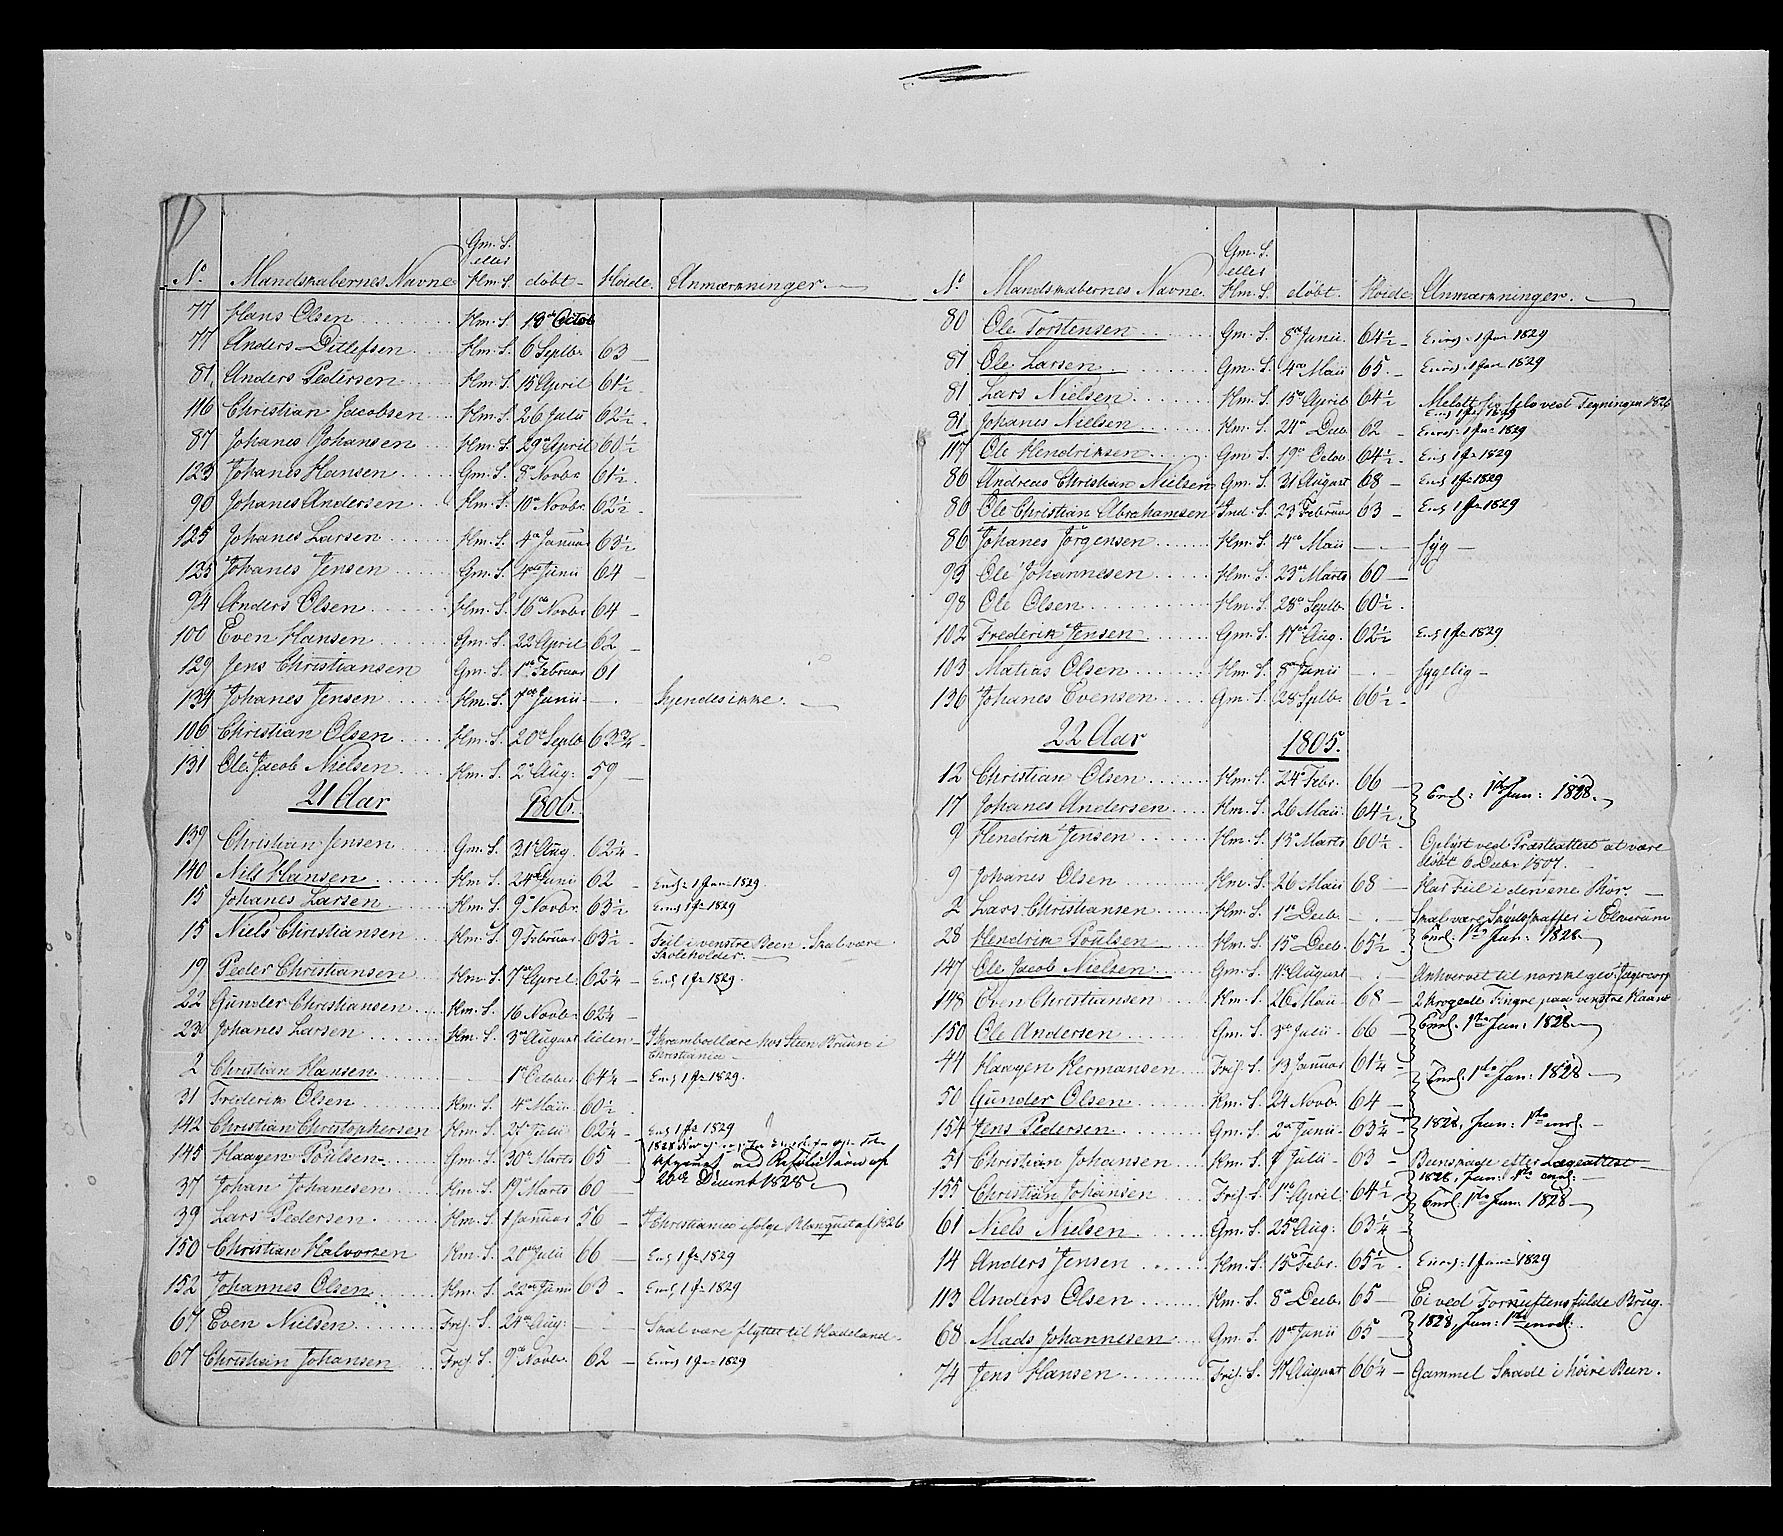 Gm. S.
eller
No. Mandskabernes Navne Hm. S. döbt. Höide. Anmærkninger.
77 Hans Olsen Hm. S. 13de Octob
77 Anders Ditlefsen Hm. S. 6 Septbr. 63
81 Anders Pedersen Hm. S. 15 April 61½
116 Christian Jacobsen Hm. S. 26 Julii 62½
87 Johanes Johansen Hm. S. 29de April 60½
123 Johanes Hansen Gm. S. 8de Novbr 61½
90 Johanes Andersen Hm. S. 10de Novbr. 62½
125 Johanes Larsen Hm. S. 4de Januar 63½
125 Johanes Jensen Gm. S. 4de Junii 64
94 Anders Olsen Hm. S. 16de Novbr 64
100 Even Hansen Gm. S. 22 April 62
129 Jens Christiansen Gm. S. 1de Februar 61
134 Johanes Jensen Hm. S. 7de Junii Kjendes ikke.
106 Christian Olsen Hm. S. 20de Septb 63¾
131 Ole Jacob Nielsen Hm. S. 2de Aug: 59
21 Aar 1806.
139 Christian Jensen Gm. S. 31 Aug. 62¼
140 Nils Hansen Hm. S. 24de Juni 62 Enr: 1 Jan 1829
15 Johanes Larsen Hm. S. 9de Novbr. 63½ Enr: 1 Ja 1829
15 Niels Christiansen Hm. S. 9 Februar 63½ Feil i venstre Been. Skal være
Skoleholder.
19 Peder Christiansen Hm. S. 7de April 62¼ Enr: 1 Ja 1829.
22 Gunder Christiansen Hm. S. 16 Novbr 62¼
23 Johanes Larsen Hm. S. 3de August liden hos Steen Bruun i
Christiania
2 Christian Hansen 1de October 64¼ Enr: 1 Ja 1829.
31 Frederik Olsen Hm. S. 4de Maii 60½
142 Christian Christophersen Hm. S. 21de Julii 62¼ Enr: 1 Ja 1829
145 Haagen Poulsen Hm. S. 30de Marts 65 1828
37 Johan Johanesen Hm. S. 19de Marts 60 Resolution af
20de 1828
39 Lars Pedersen Hm. S. 1 Januar 56 Christiania ifølge 1826
150 Christian Halvorsen Hm. S. 20de Julii 66 Enr: 1 Ja 1829
152 Johannes Olsen Hm. S. 22de Junii 63 Enr: 1 Ja 1829
67 Even Nielsen Frij. S. 24de Aug: Skal være flyttet til Hadeland
67 Christian Johansen Frij. S. 9de Novbr. 62 Enr: 1 Ja 1829
Gm. S.
eller
No. Mandskabernes Navne Hm. S. döbt. Höide. Anmærkninger.
80 Ole Torstensen Gm. S. 8de Junii 64½ Enr: 1 Jan 1829
81 Ole Larsen Gm. S. 4de Maii 65 Enr: 1 Jan 1829
81 Lars Nielsen Hm. S. 15de April 64½ Meldt sig selv ved Tegningen 1826
Enr: 1 Ja 1829
81 Johanes Nielsen Hm. S. 24de Decb 62 Enr: 1 Ja 1829
117 Ole Hendriksen Gm. S. 19de Octbr 64½ Enr: 1 Ja 1829
86 Andreas Christian Nielsen Gm. S. 31 August 68 Enr: 1 Ja 1829
80 Ole Christian Abrahamsen Ind. S. 23 Februar 63 Enr: 1 Ja 1829
86 Johanes Jörgensen Hm. S. 4de Maii Syg
93 Ole Johannesen Hm. S. 23de Marts 60
98 Ole Olsen Hm. S. 28de Septb 60½
102 Frederik Jensen Gm. S. 17de Aug. 62½ Enr: 1 Ja 1829
103 Matias Olsen Hm. S. 8de Junii Sygelig
136 Johanes Evensen Gm. S. 28 Sptbr. 66½
22 Aar 1805.
12 Christian Olsen Hm. S. 24de Febr. 66
17 Johanes Andersen Hm. S. 26 Maii 64½ Enrl: 1ste Jan: 1828.
9 Hendrik Jensen Hm. S. 13de Marts 60½ Oplyst ved Præsteattest at være
döbt 6 Decbr 1807.
9 Johanes Olsen Hm. S. 26 Maii 68 Har Feil i den ene Haar.
2 Lars Christiansen Hm. S. 1de Decb. Skal være Skydsskaffer i Elverum
28 Hendrik Poulsen Hm. S. 15de Decb. 65½ Enrl: 1ste Jan: 1828
147 Ole Jacob Nielsen Gm. S. 11de August Anhvervet til norske gev: Jægercorp
148 Even Christiansen Hm. S. 26de Maii 68 2 krogede Fingre paa venstre Haand
150 Ole Andersen Gm. S. 3de Julii 66 Enrl: 1ste Jan: 1828
44 Haagen Hermansen Frij. S. 19 Januar 61¼
50 Gunder Olsen Hm. S. 24 Novb. 64 Enrl: 1ste Jan: 1828
154 Jens Pedersen Gm. S. 2de Junii 63¼ 1828, Jan: 1ste enrl.
51 Christian Johansen Hm. S. 7 Julii 63 Beenskade efter Lægeattest
1828, Jan: 1ste enrl:
155 Christian Johansen Frij. S. 1de April 64½ Enrl: 1ste Jan: 1828
61 Niels Nielsen Gm. S. 25de Aug: 63¼
14 Anders Jensen Hm. S. 15de Febr. 65½ Enr: 1 Jan 1829
113 Anders Olsen Hm. S. 8de Decb. 65 Ei ved Fornuftens fulde Brug.
68 Mads Johannesen Gm. S. 10de Junii 65 1828, Jan: 1ste enrl:
74 Jens Hansen Frij. S. 17 August 66¼ Gammel Skade i höire Been.